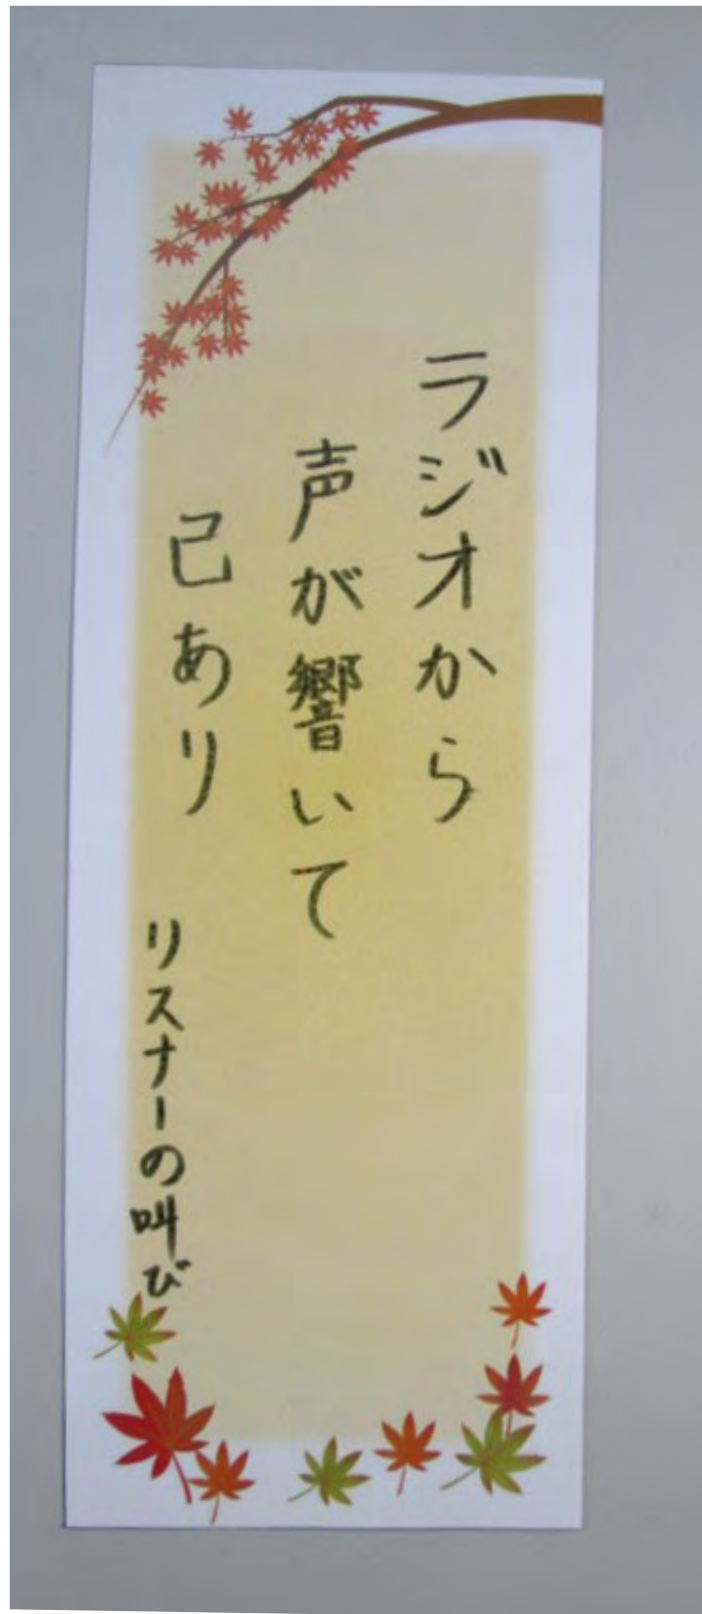 ラジオから
声が響いて
己あり
リスナーの叫び